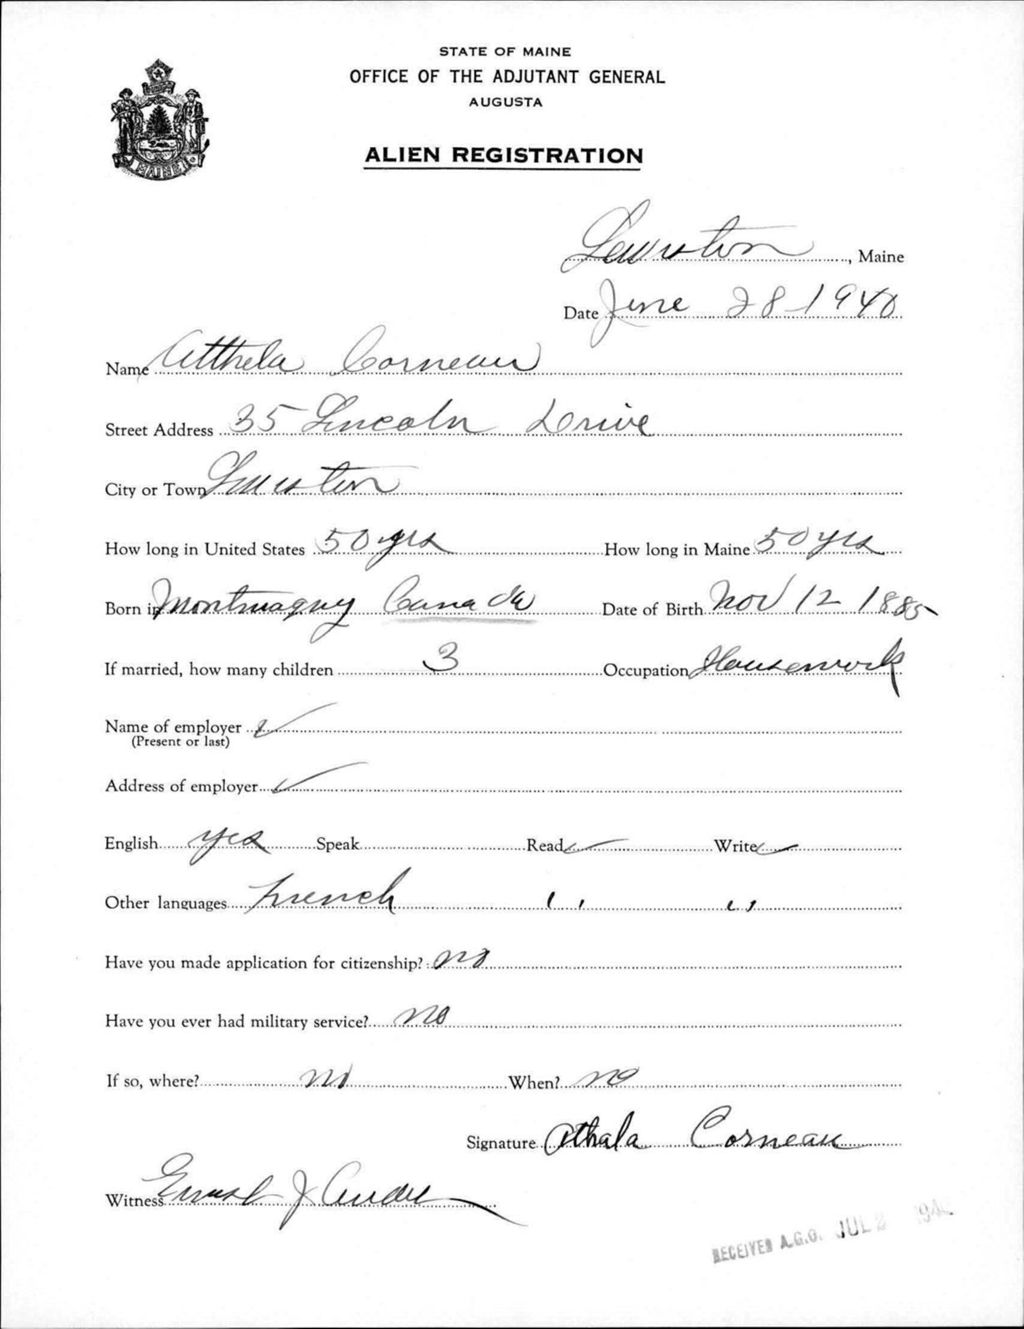 STATE OF MAINE
OFFICE OF THE ADJUTANT GENERAL
AUGUSTA
ALIEN REGISTRATION
MAINE
Lewiston, Maine
Date June 28-1940
Name Atthela Corneau
Street Address 35 Lincoln Drive
City or Town Lewiston
How long in United States 50 yrs How long in Maine 50 yrs
Born in Montmagny Canada Date of Birth Nov 12 1885
If married, how many children 3 Occupation Housework
Name of employer ✓
(Present or last)
Address of employer ✓
English yes Speak Read ✓ Write ✓
Other languages French " "
Have you made application for citizenship? no
Have you ever had military service? no
If so, where? no When? no
Signature Athala Corneau
Witness Ernest J
RECEIVED A.G.O. JUL 2 1940